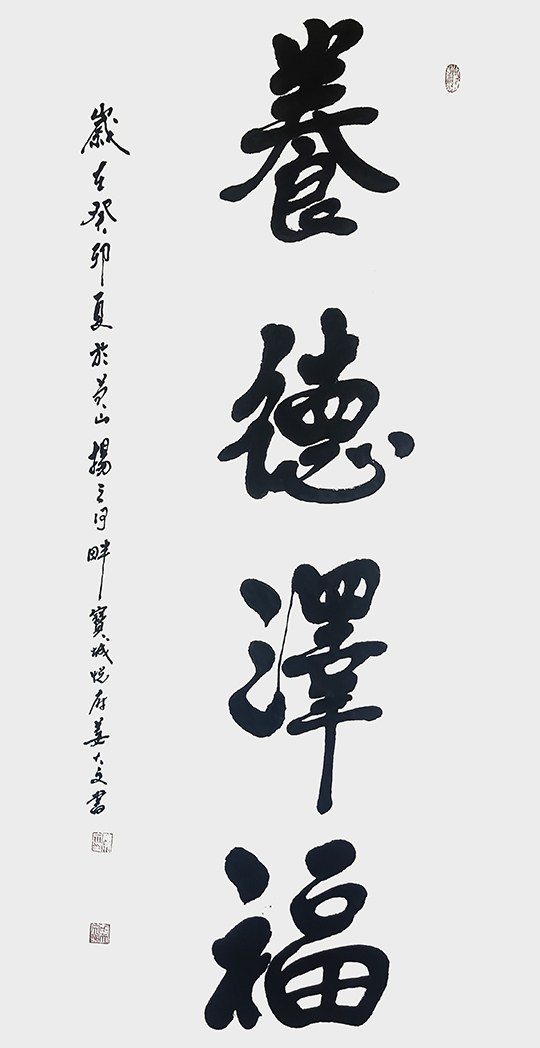 養德澤福
歲在癸卯夏於黃山揚之河畔寶城悅府姜大文書